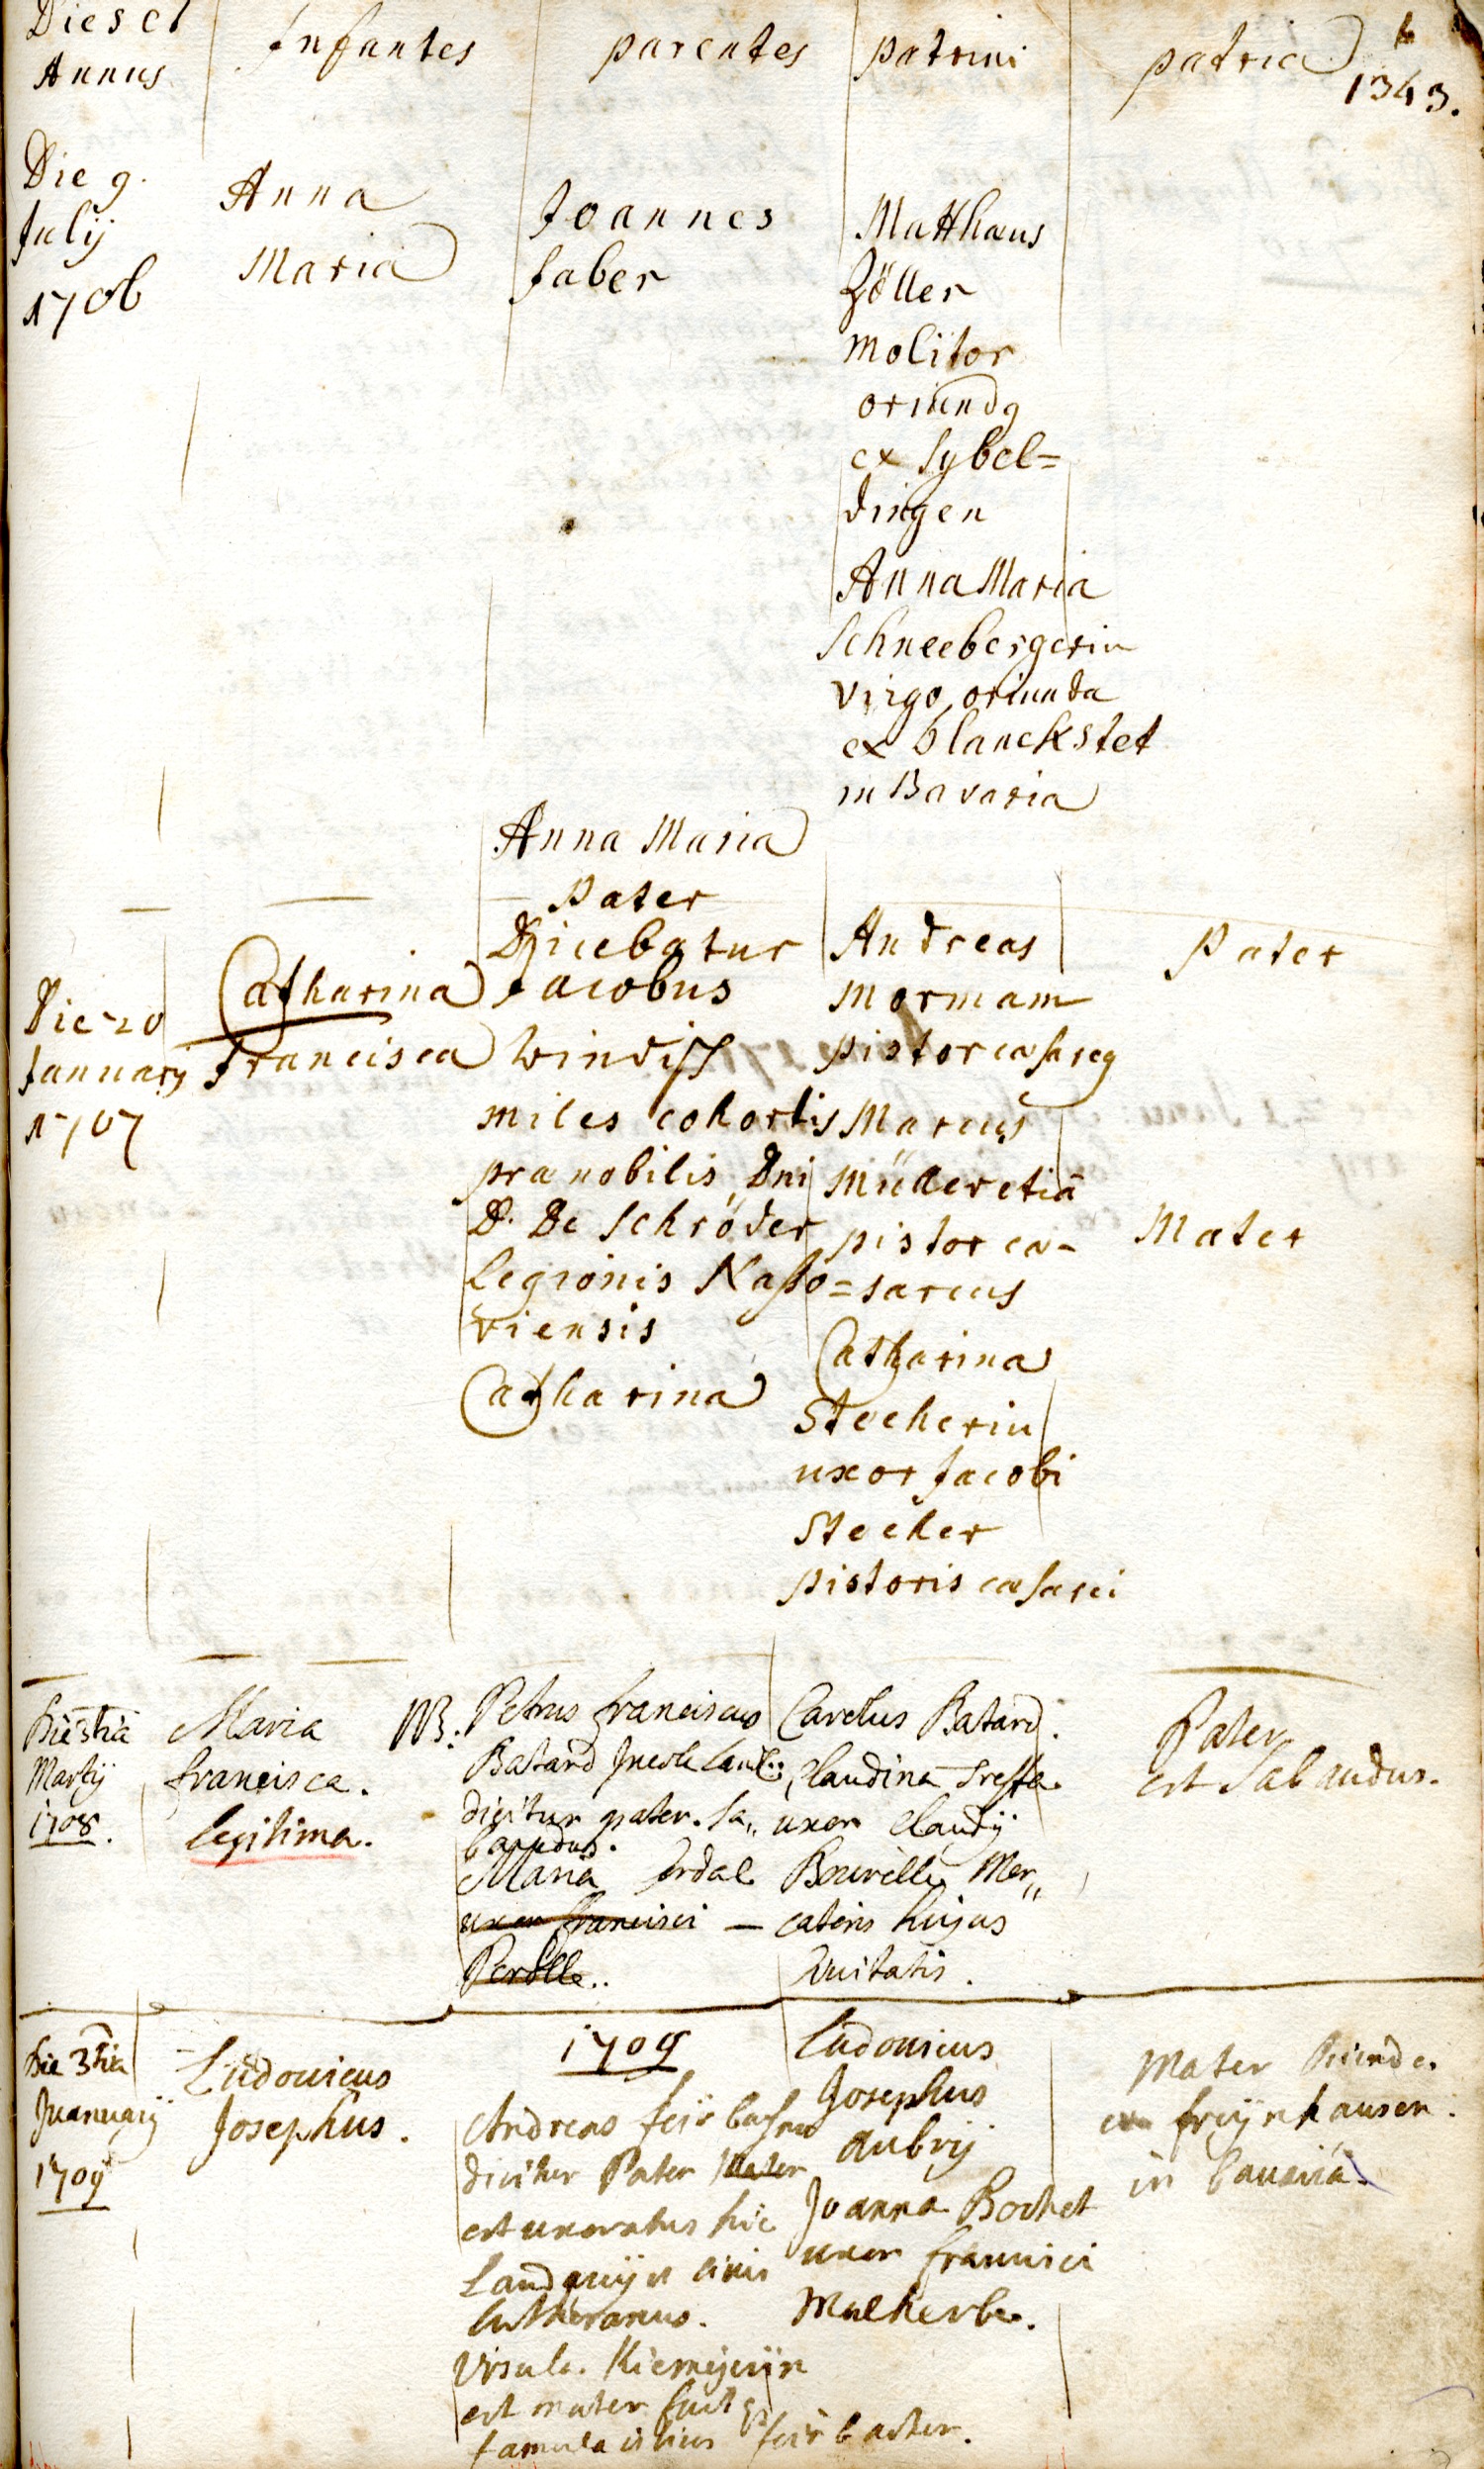 Dies et
Annus
Infantes
parentes
patrini
patria
1343.
Die 9.
Julij
1706
Anna
Maria
Joannes
faber
Matthæus
Zöller
molitor
oriundq
ex Sybel=
dingen
Anna Maria
Schneebergerin
virgo oriunda
ex blanckstet
in Bavaria
Anna Maria
Die 20
January
1707
Catharina
francisca
Pater
Dicebatur
Jacobus
Windiss
miles cohortis
prænobilis Dni
D. De Schröder
legionis Nasso=
viensis
Catharina
Andreas
Mormam
pistor cæsareg
Marcus
Müller etiā
pistor cæ-
sareus
Catharina
Steckerin
uxor Jacobi
Stecker
pistoris cæsarei
Pater
Mater
Die 3tia
Martij
1708.
Maria
francisca.
legitima.
NB.
Petrus franciscus
Batard
dicitur pater. Sa,,
baudus.
Maria Ordal
uxor francisci —
Perolle..
Carolus Batard.
Claudina
uxor Claudij
Bourelle Mer,,
catoris hujus
Civitatis.
Pater
est Sabaudus.
Die 3tia
Januarij
1709
Ludovicus
Josephus.
1709
Andreas feirbacher
dicitur Pater
est uxoratus hic
Landavij civis
lutheranus.
Ursula. Kiemeyerin
est mater fuit qz
famula feirbacher.
Ludovicus
Josephus
aubry
Joanna Bochet
uxor francisci
Malherbe.
Mater
ex freijnhausen.
in bavaria.